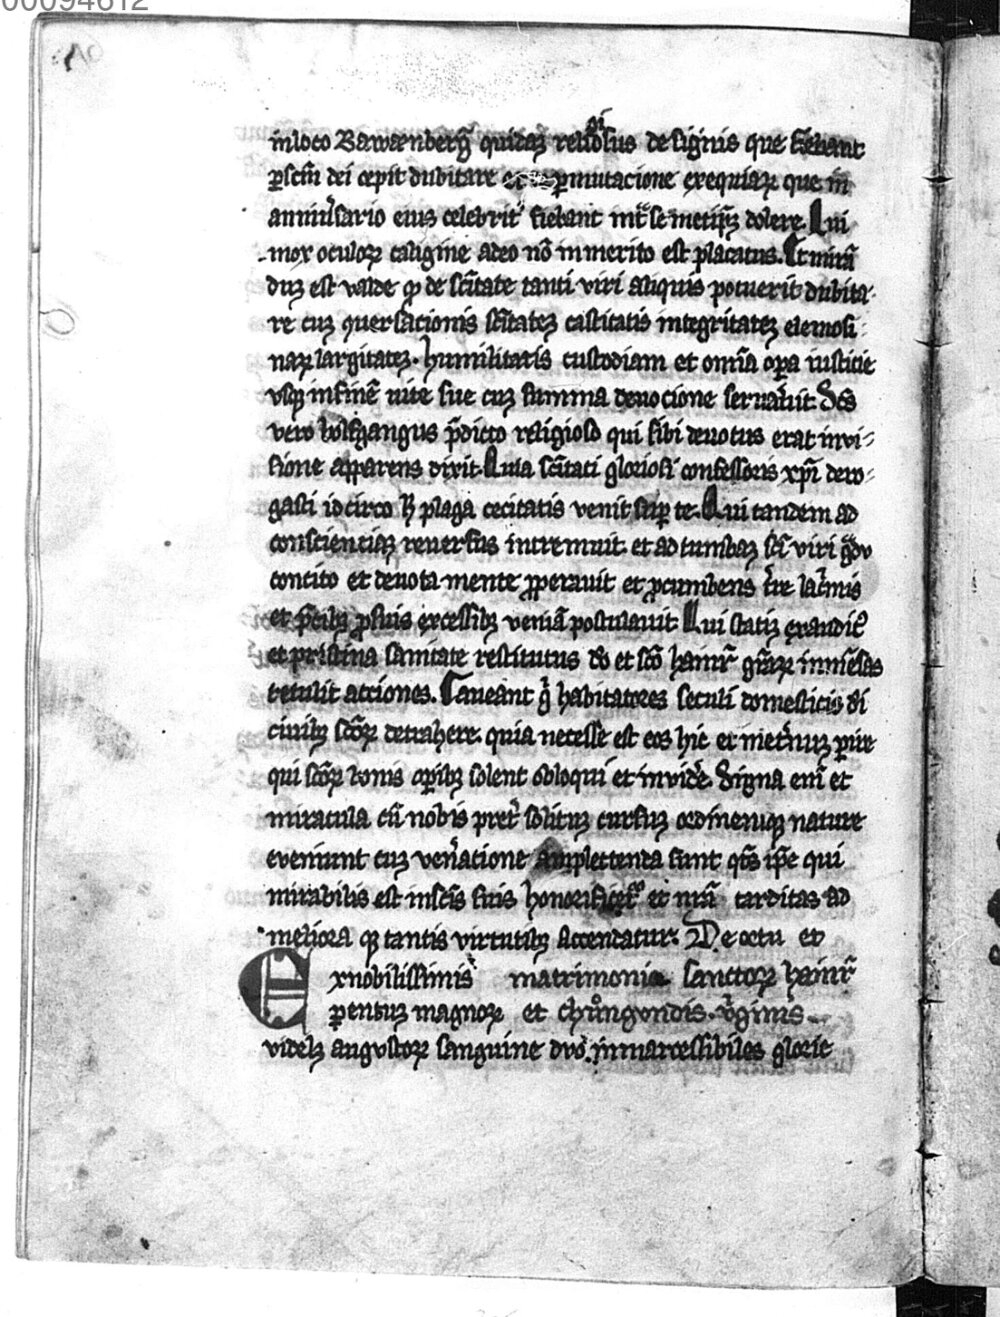 00094612
in loco Bawænberg̃ quidaꝫ relioſus de ſignis que fiebant
gi
ꝑ ſc̃m dei cepit dubitare et ꝑmutacione exequiaꝝ que in
anniuͥſario eius celebrit̾ fiebant int̾ ſe metip̃ꝫ dolere. Qui
mox oculoꝝ caligine adeo nõ inmerito eſt placatus. Et mirã
duꝫ eſt valde ꝙ de ſc̃itate tanti viri aliquis potuerit dubita
re cuꝫ ꝯuerſacionis ſc̃itateꝫ caſtitatis integritateꝫ elemoſi
naꝝ largitateꝫ. humilitatis cuſtodiam et omĩa oꝑa iuſticie
vſqꝫ in finẽ uite ſue cuꝫ ſumma deuocione ſeruauͥit Sc̃s
vero Wolfgangus p̃dicto religioſo qui ſibi deuotus erat in vi
ſione apparens dixit. Quia ſc̃itati glorioſi confeſſoris xp̃i dero
gaſti idcirco h̾ plaga cecitatis venit ſuꝑ te. Qui tandem ad
conſcienciaꝫ reuerſus intremuit et ad tumbaꝫ ſc̃i viri g̃du
concito et deuota mente ꝓperauit et ꝓcumbens t̾re lac̾mis
et p̃cibꝫ ꝓ ſuis exceſſibꝫ veniã poſtulauit Qui ſtatiꝫ exaudit̾
et priſtina ſanitate reſtitutus do et ſc̃o hainr̾ gr̃aꝝ inmẽſas
retulit acciones. Caueant g̾ habitatores ſeculi domeſticis di
ciuibꝫ ſc̃oꝝ detrahere quia neceſſe eſt eos hic et in et̾nuꝫ ꝑire
qui ſc̃oꝝ bonis oꝑibꝫ ſolent obloqui et inuid̾e. Signa eni̾ et
miracula cũ nobis pret̾ ſolituꝫ curſuꝫ ordinemqꝫ nature
eveniunt cuꝫ ven̾atione amplectenda ſunt q̃s ip̃e qui
mirabilis eſt in ſc̃is ſuis honorificet᷑ et nr̃a tarditas ad
meliora ꝙ tantis virtutibꝫ accendatur. De ortu et
Exnobiliſſimis matrimonia ſanctoꝝ hainr̾
ꝑentuꝫ magnoꝝ et chůngondis v̾ginis
videlꝫ anguſtoꝝ ſanguine duo inmarceſſibiles glorie